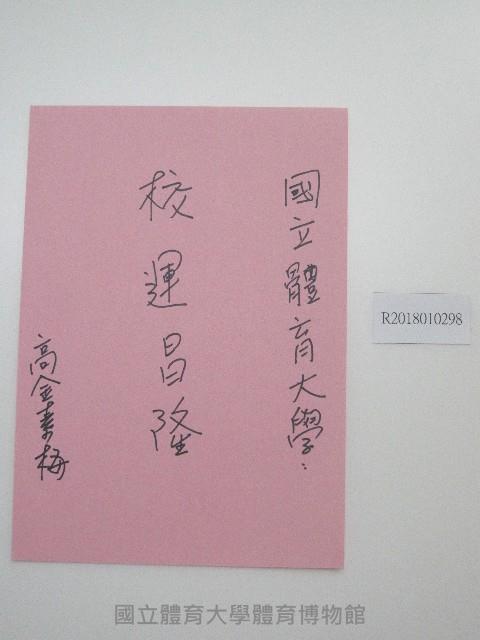 國立體育大學：
校運昌隆
高金素梅
R2018010298
國立體育大學體育博物館